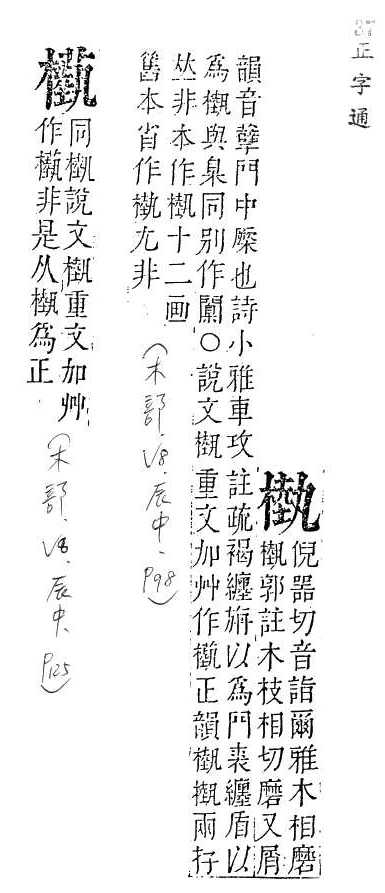 37
正字通
槸
倪器切音詣爾雅木相磨
槸郭註木枝相切磨又屑
韻音孽門中橜也詩小雅車攻註疏褐纏旃以爲門裘纏盾以
爲槸與臬同別作闑○說文槸重文加艸作㰙正韻槸槸兩存
𠀤非本作槸十二画
舊本省作槸尤非
(木部, V8, 辰中, P98)
㰙
同槸說文槸重文加艸
作㰙非是从槸爲正
(木部, V8, 辰中, P125)